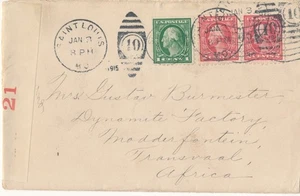 SAINT LOUIS
JAN 3
8 PM
10
1915
1 CENT 1
JAN 3
10
21
Mrs Gustav Burmester
Dynamite Factory
Modderfontein,
Transvaal,
Africa